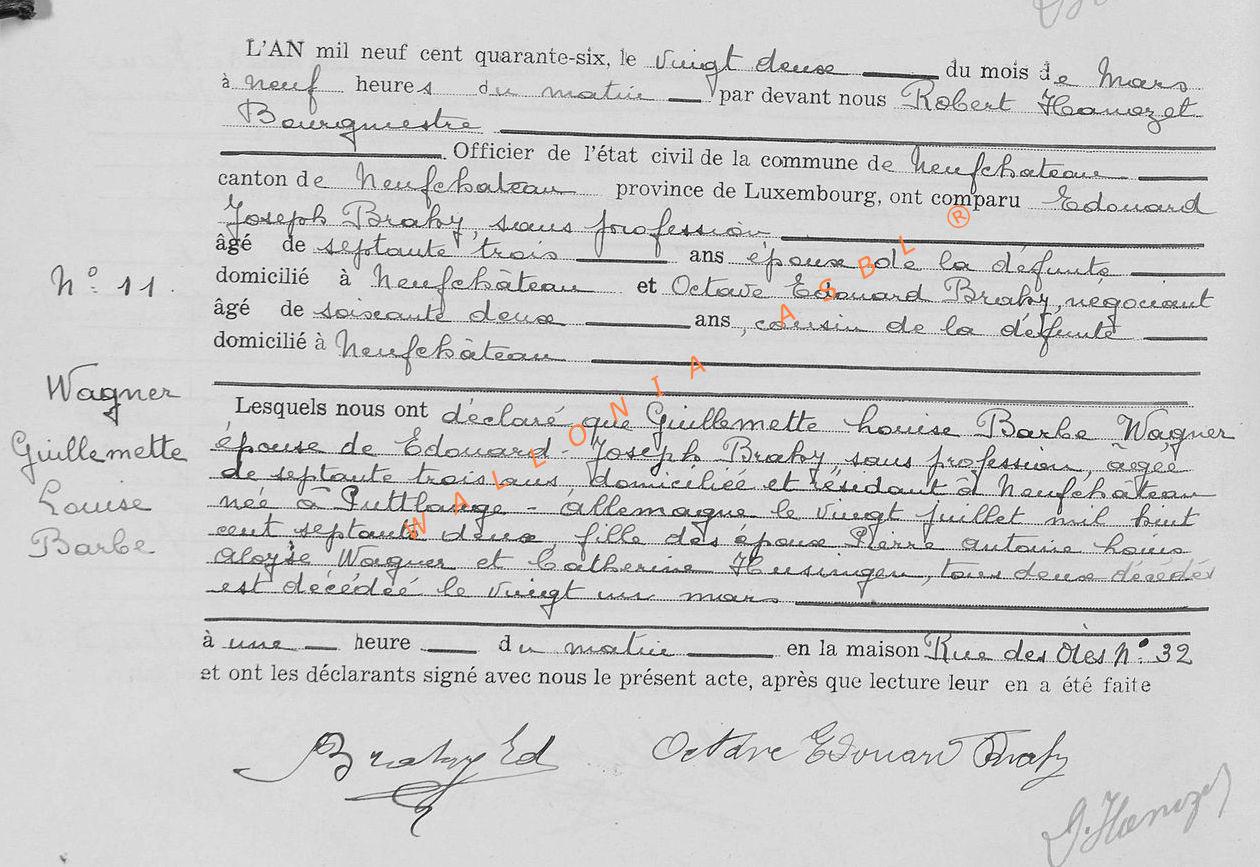 L'AN mil neuf cent quarante-six, le vingt deux du mois de Mars
à neuf heures du matin par devant nous Robert Hanozet
Bourgmestre
Officier de l'état civil de la commune de Neufchateau
canton de Neufchateau province de Luxembourg, ont comparu Edouard
Joseph Brahy, sans profession
âgé de septante trois ans époux de la défunte
domicilié à Neufchâteau et Octave Edouard Brahy, négociant
N° 11.
âgé de soixante deux ans, cousin de la défunte
domicilié à Neufchâteau
Wagner
Guillemette
Louise
Barbe
Lesquels nous ont déclaré que Guillemette Louise Barbe Wagner
épouse de Edouard-Joseph Brahy, sans profession, âgée
de septante trois ans, domiciliée et résidant à Neufchâteau
née à Puttlange - Allemagne le vingt juillet mil huit
cent septante deux fille des époux Pierre Antoine Louis
Aloyse Wagner et Catherine, tous deux décédés
est décédée le vingt un mars
à une heure du matin en la maison Rue des Oies N° 32
et ont les déclarants signé avec nous le présent acte, après que lecture leur en a été faite
Brahy Ed Octave Edouard Brahy
Hanozet
WALLONIA ASBL ®